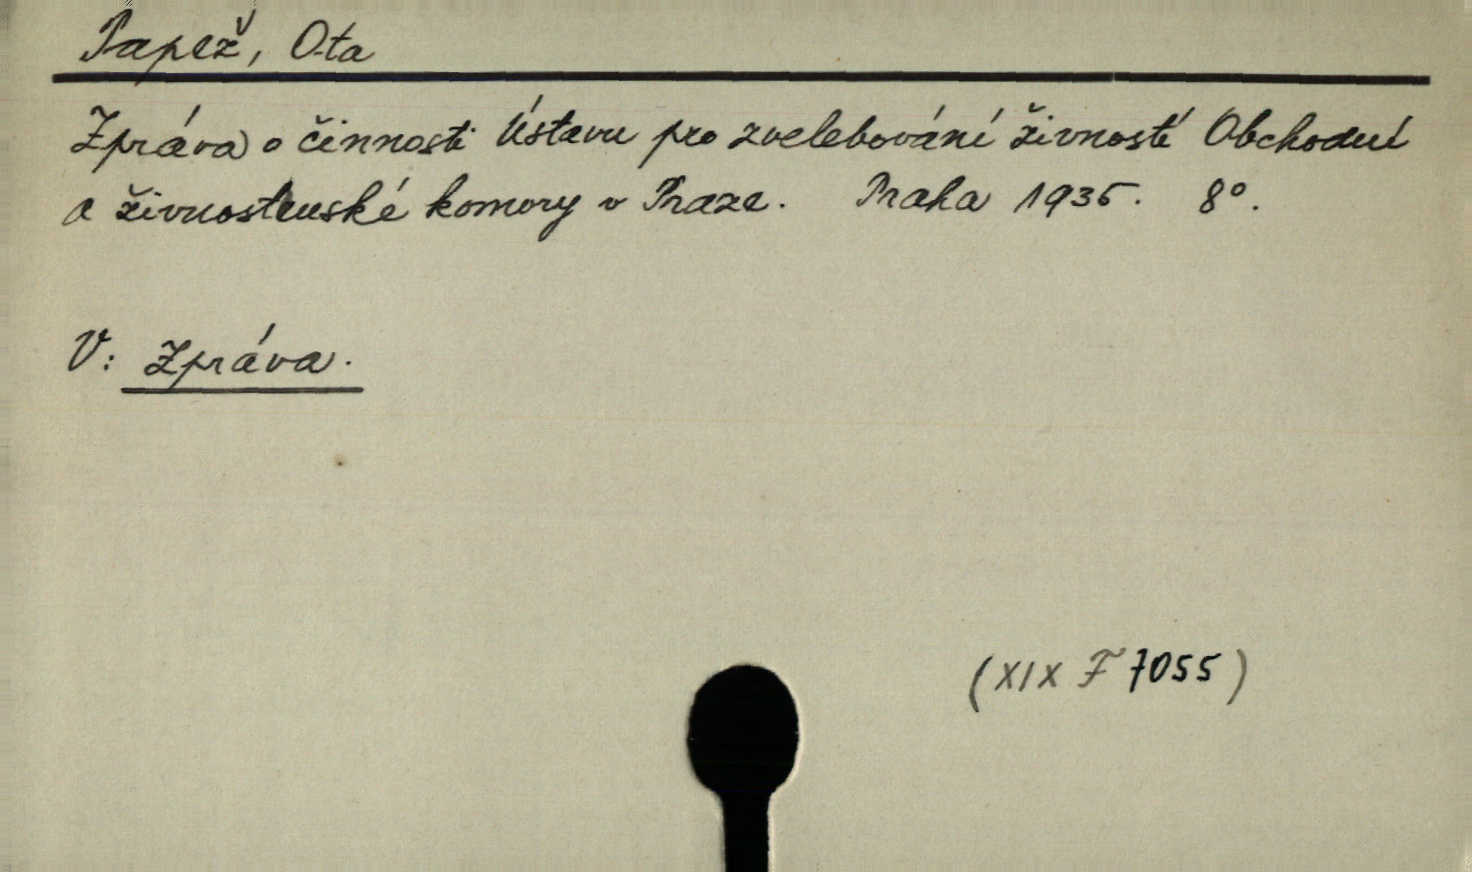 Papež, Ota
Zpráva o činnosti Ústavu pro zvelebování živností Obchodní
a živnostenské komory v Praze. Praha 1935. 8°.
V: Zpráva.
(XIX F 7055)